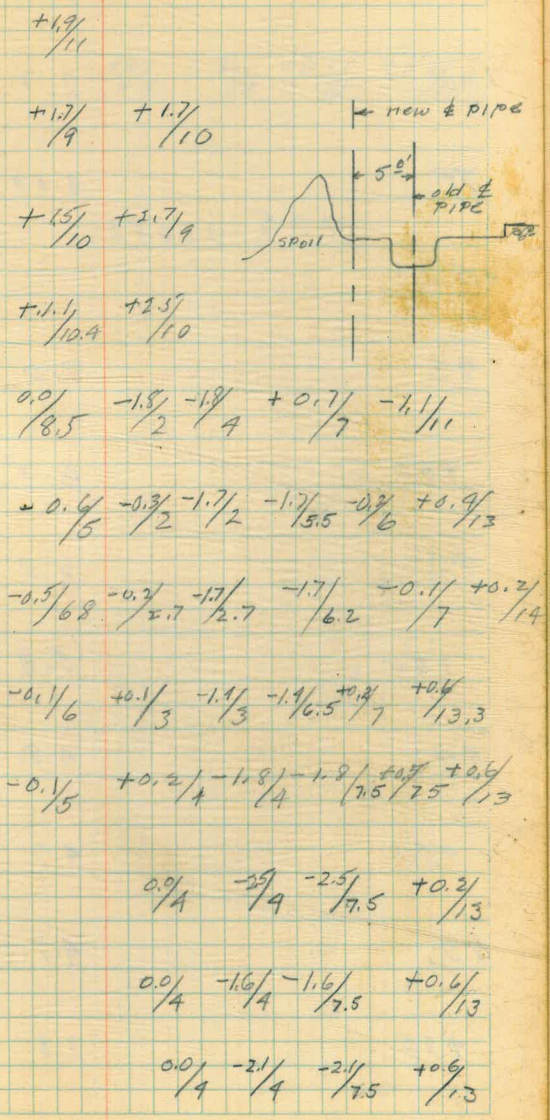 +1.9/11
+1.7/9 +1.7/10
← new ℄ pipe
5 0'
old ℄
pipe
+1.5/10 +1.7/9
spoil
+1.1/10.4 +2.5/10
0.0/8.5 -1.8/2 -1.8/4 +0.7/7 -1.1/11
-0.6/5 -0.3/2 -1.7/2 -1.7/5.5 -0.3/6 +0.9/13
-0.5/6.8 -0.2/2.7 -1.7/2.7 -1.7/6.2 -0.1/7 +0.2/14
-0.1/6 +0.1/3 -1.4/3 -1.4/6.5 +0.2/7 +0.6/13.3
-0.1/5 +0.2/4 -1.8/4 -1.8/7.5 +0.5/7.5 +0.6/13
0.0/4 -2.5/4 -2.5/7.5 +0.2/13
0.0/4 -1.6/4 -1.6/7.5 +0.6/13
0.0/4 -2.1/4 -2.1/7.5 +0.6/13